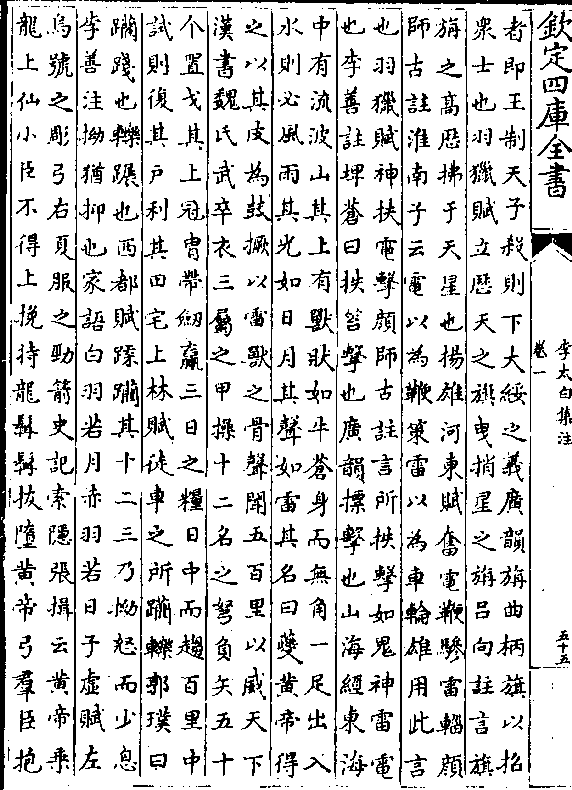 欽定四庫全書
李太白集注
卷一
五十五
者即王制天子殺則下大綏之義廣韻旃曲柄旗以招
衆士也羽獵賦立歴天之旗曳捎星之旃吕向註言旗
旃之髙歴拂于天星也揚雄河東賦奮電鞭驂雷輜顔
師古註淮南子云電以為鞭策雷以為車輪雄用此言
也羽獵賦神抶電擊顔師古註言所抶擊如鬼神雷電
也李善註埤蒼曰抶笞擊也廣韻摽擊也山海經東海
中有流波山其上有獸狀如牛蒼身而無角一足出入
水則必風雨其光如日月其聲如雷其名曰夔黄帝得
之以其皮為鼓橛以雷獸之骨聲聞五百里以威天下
漢書魏氏武卒衣三屬之甲操十二名之弩負矢五十
个置戈其上冠胄帶劒贏三日之糧日中而趨百里中
試則復其戸利其田宅上林賦徒車之所躪轢郭璞曰
躪踐也轢蹍也西都賦蹂躪其十二三乃拗怒而少息
李善注拗猶抑也家語白羽若月赤羽若日子虚賦左
烏號之彫弓右夏服之勁箭史記索隱張揖云黄帝乗
龍上仙小臣不得上挽持龍髯髯拔墮黄帝弓羣臣抱